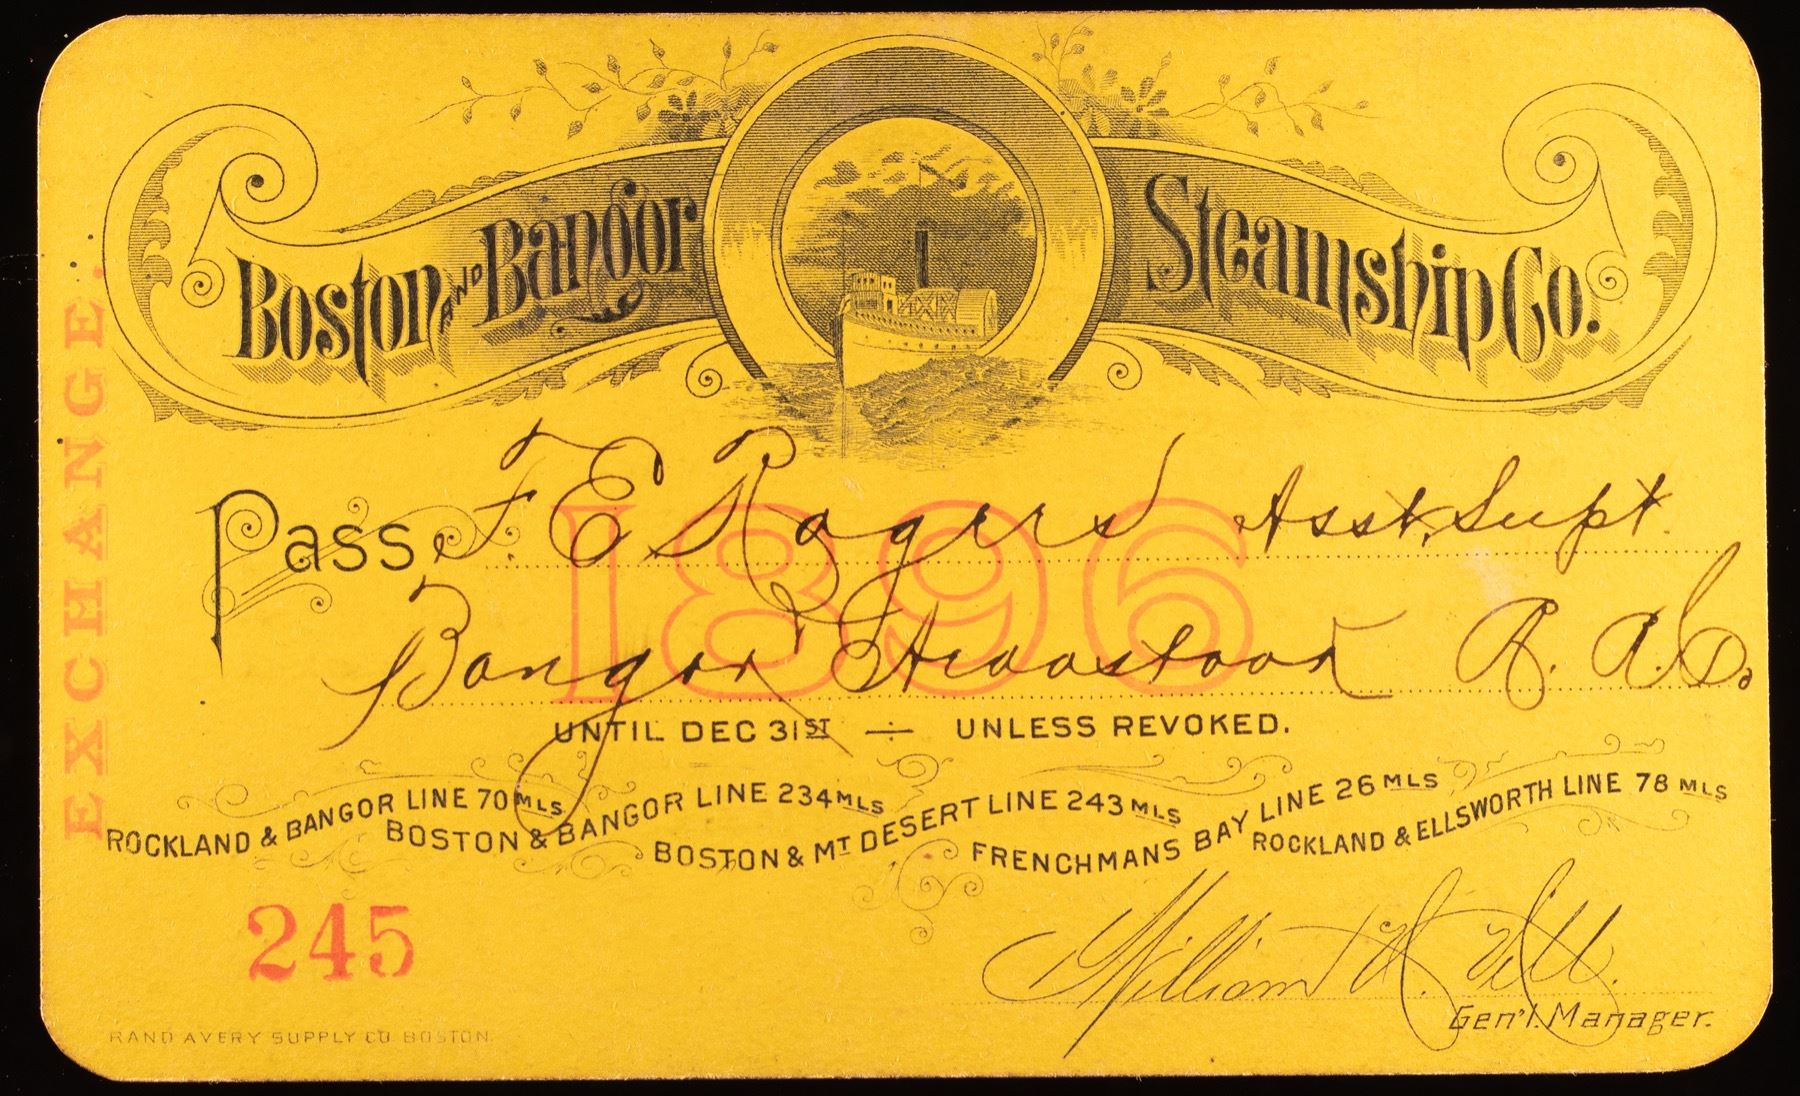 EXCHANGE.
Boston AND Bangor Steamship Co.
1896
Pass F. E. Rogers Asst. Supt.
Bangor & Aroostook R. R. Co
UNTIL DEC 31ST ÷ UNLESS REVOKED.
ROCKLAND & BANGOR LINE 70 MLS
BOSTON & BANGOR LINE 234 MLS
BOSTON & MT DESERT LINE 243 MLS
FRENCHMANS BAY LINE 26 MLS
ROCKLAND & ELLSWORTH LINE 78 MLS
245
William H. Hill.
Gen'l. Manager.
RAND AVERY SUPPLY CO. BOSTON.